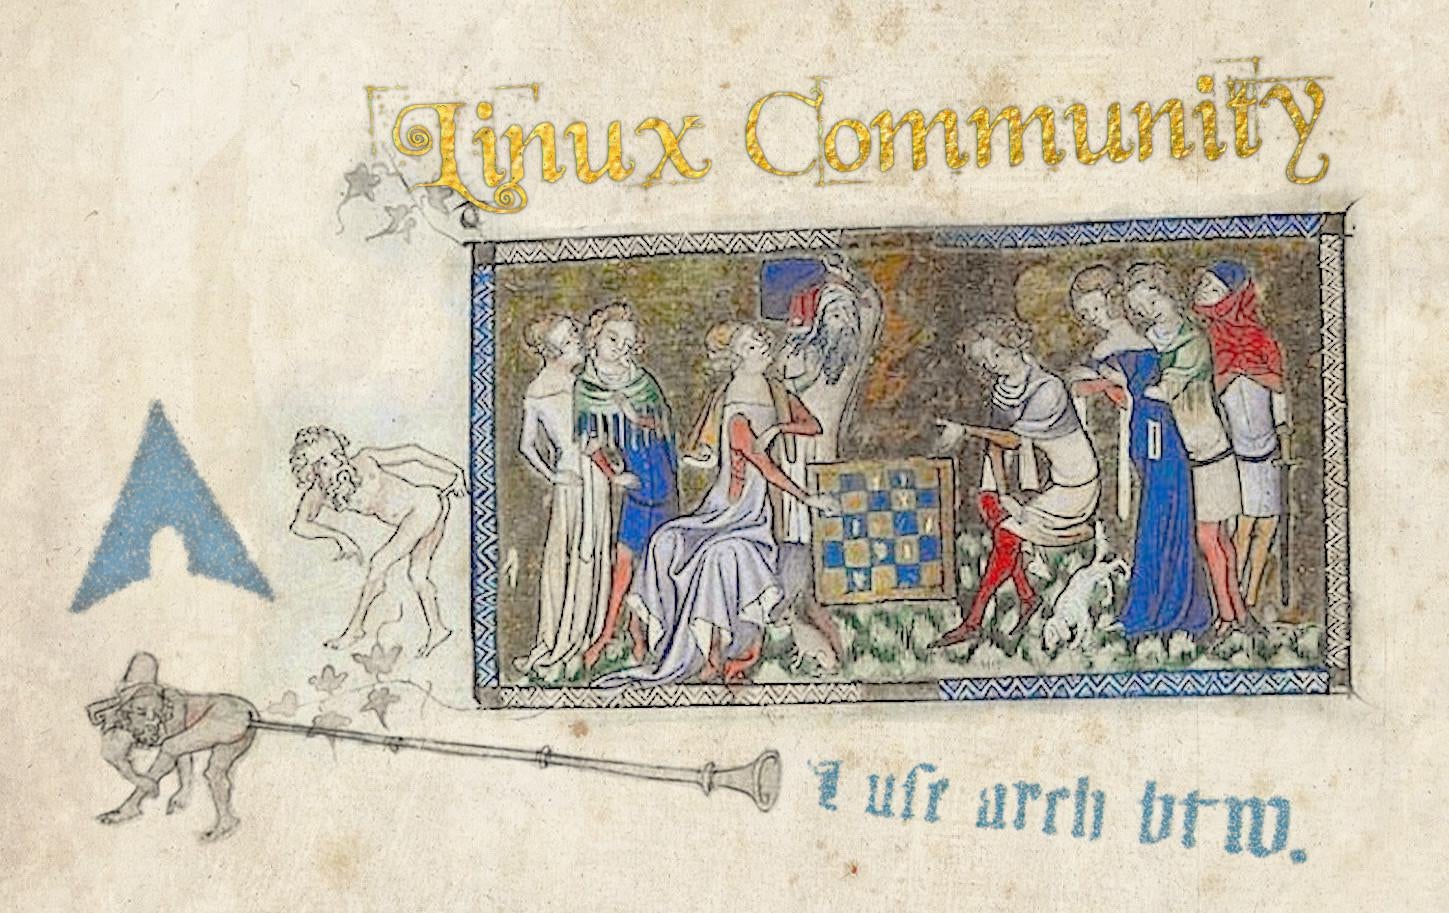 Linux Community
I uſe arch btw.